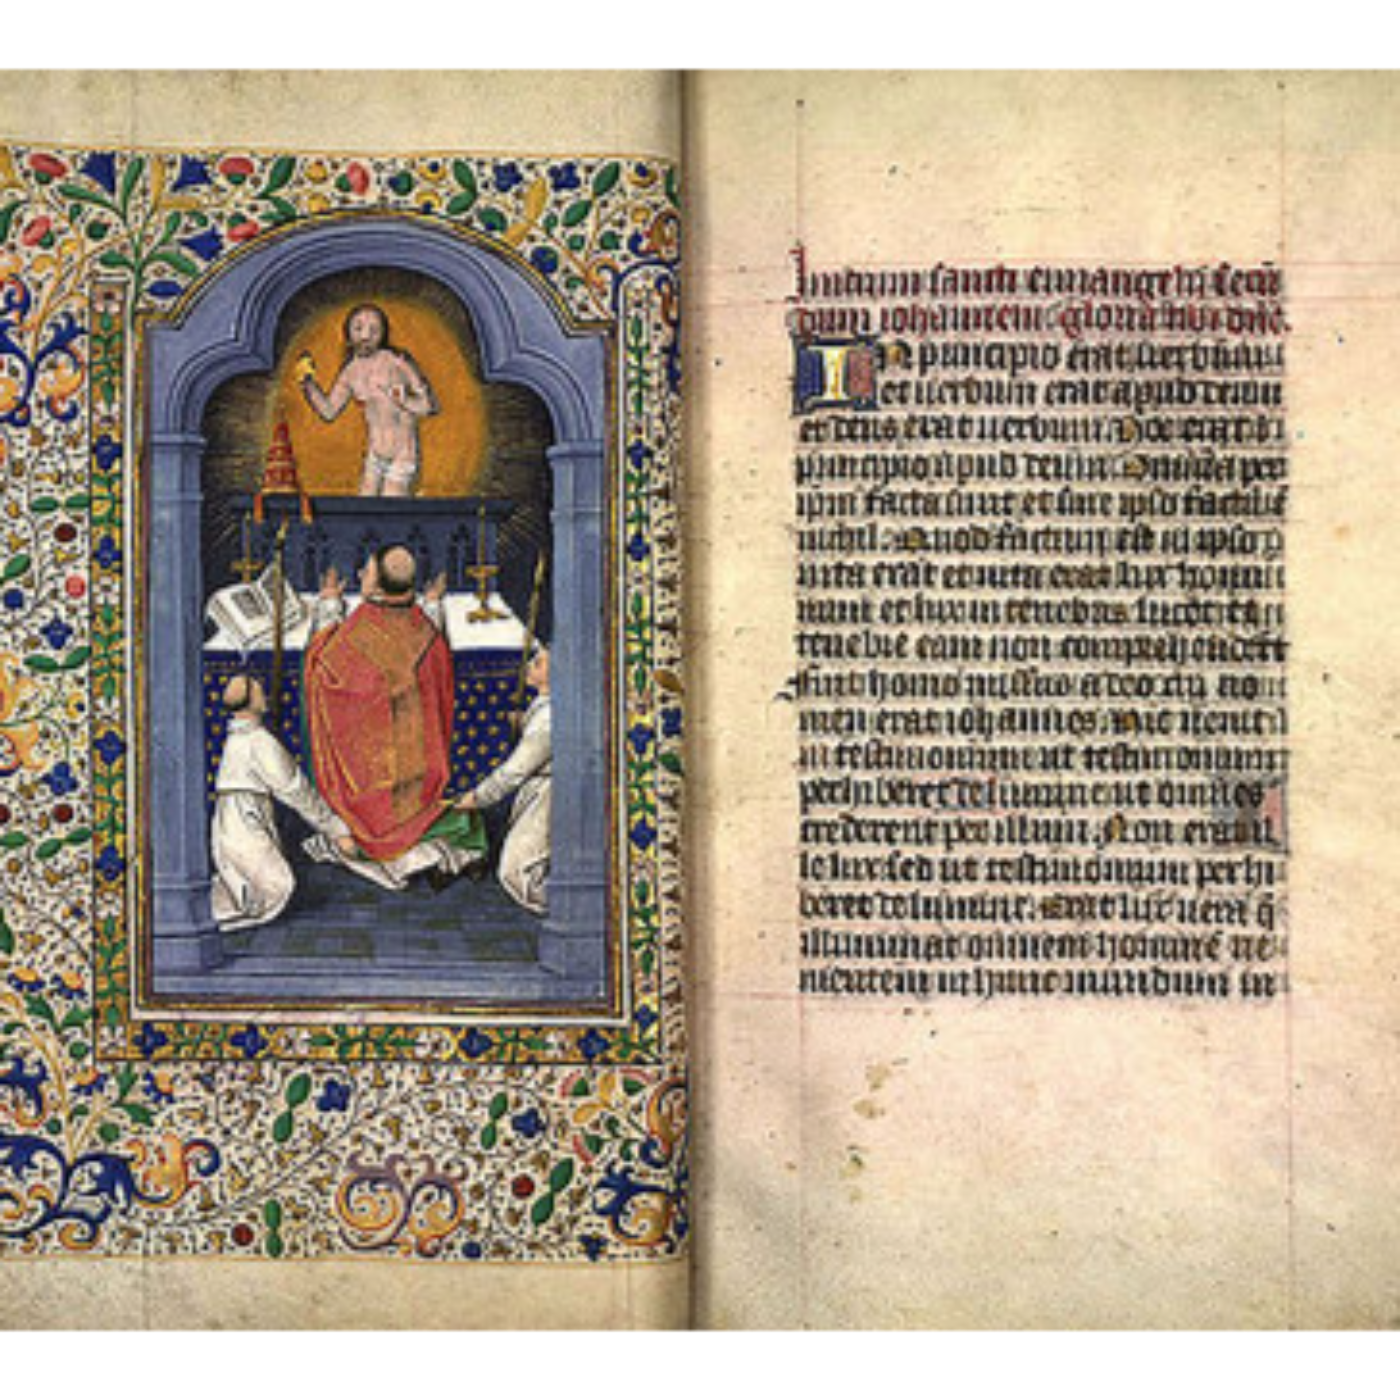 Inicium sancti euuangelij secū
dum iohannem. gloria tibi dnē.
In principio erat uerbū
et uerbum erat apud deum
et deus erat uerbum. Hoc erat i
principio apud deum. Omnia per
ipm facta sunt et sine ipso factū ē
nichil. Quod factum est in ipso
uita erat et uita erat lux homi
num et lux in tenebris lucet et
tenebre eam non comprehenderūt
Fuit homo missus a deo cui no
men erat iohannes. Hic uenit
in testimonium ut testimonium
perhiberet de lumine ut omnes
crederent per illum. Non erat il
le lux sed ut testimonium perhi
beret de lumine. Erat lux uera q̄
illuminat omnem hominē ue
nientem in hunc mundum in